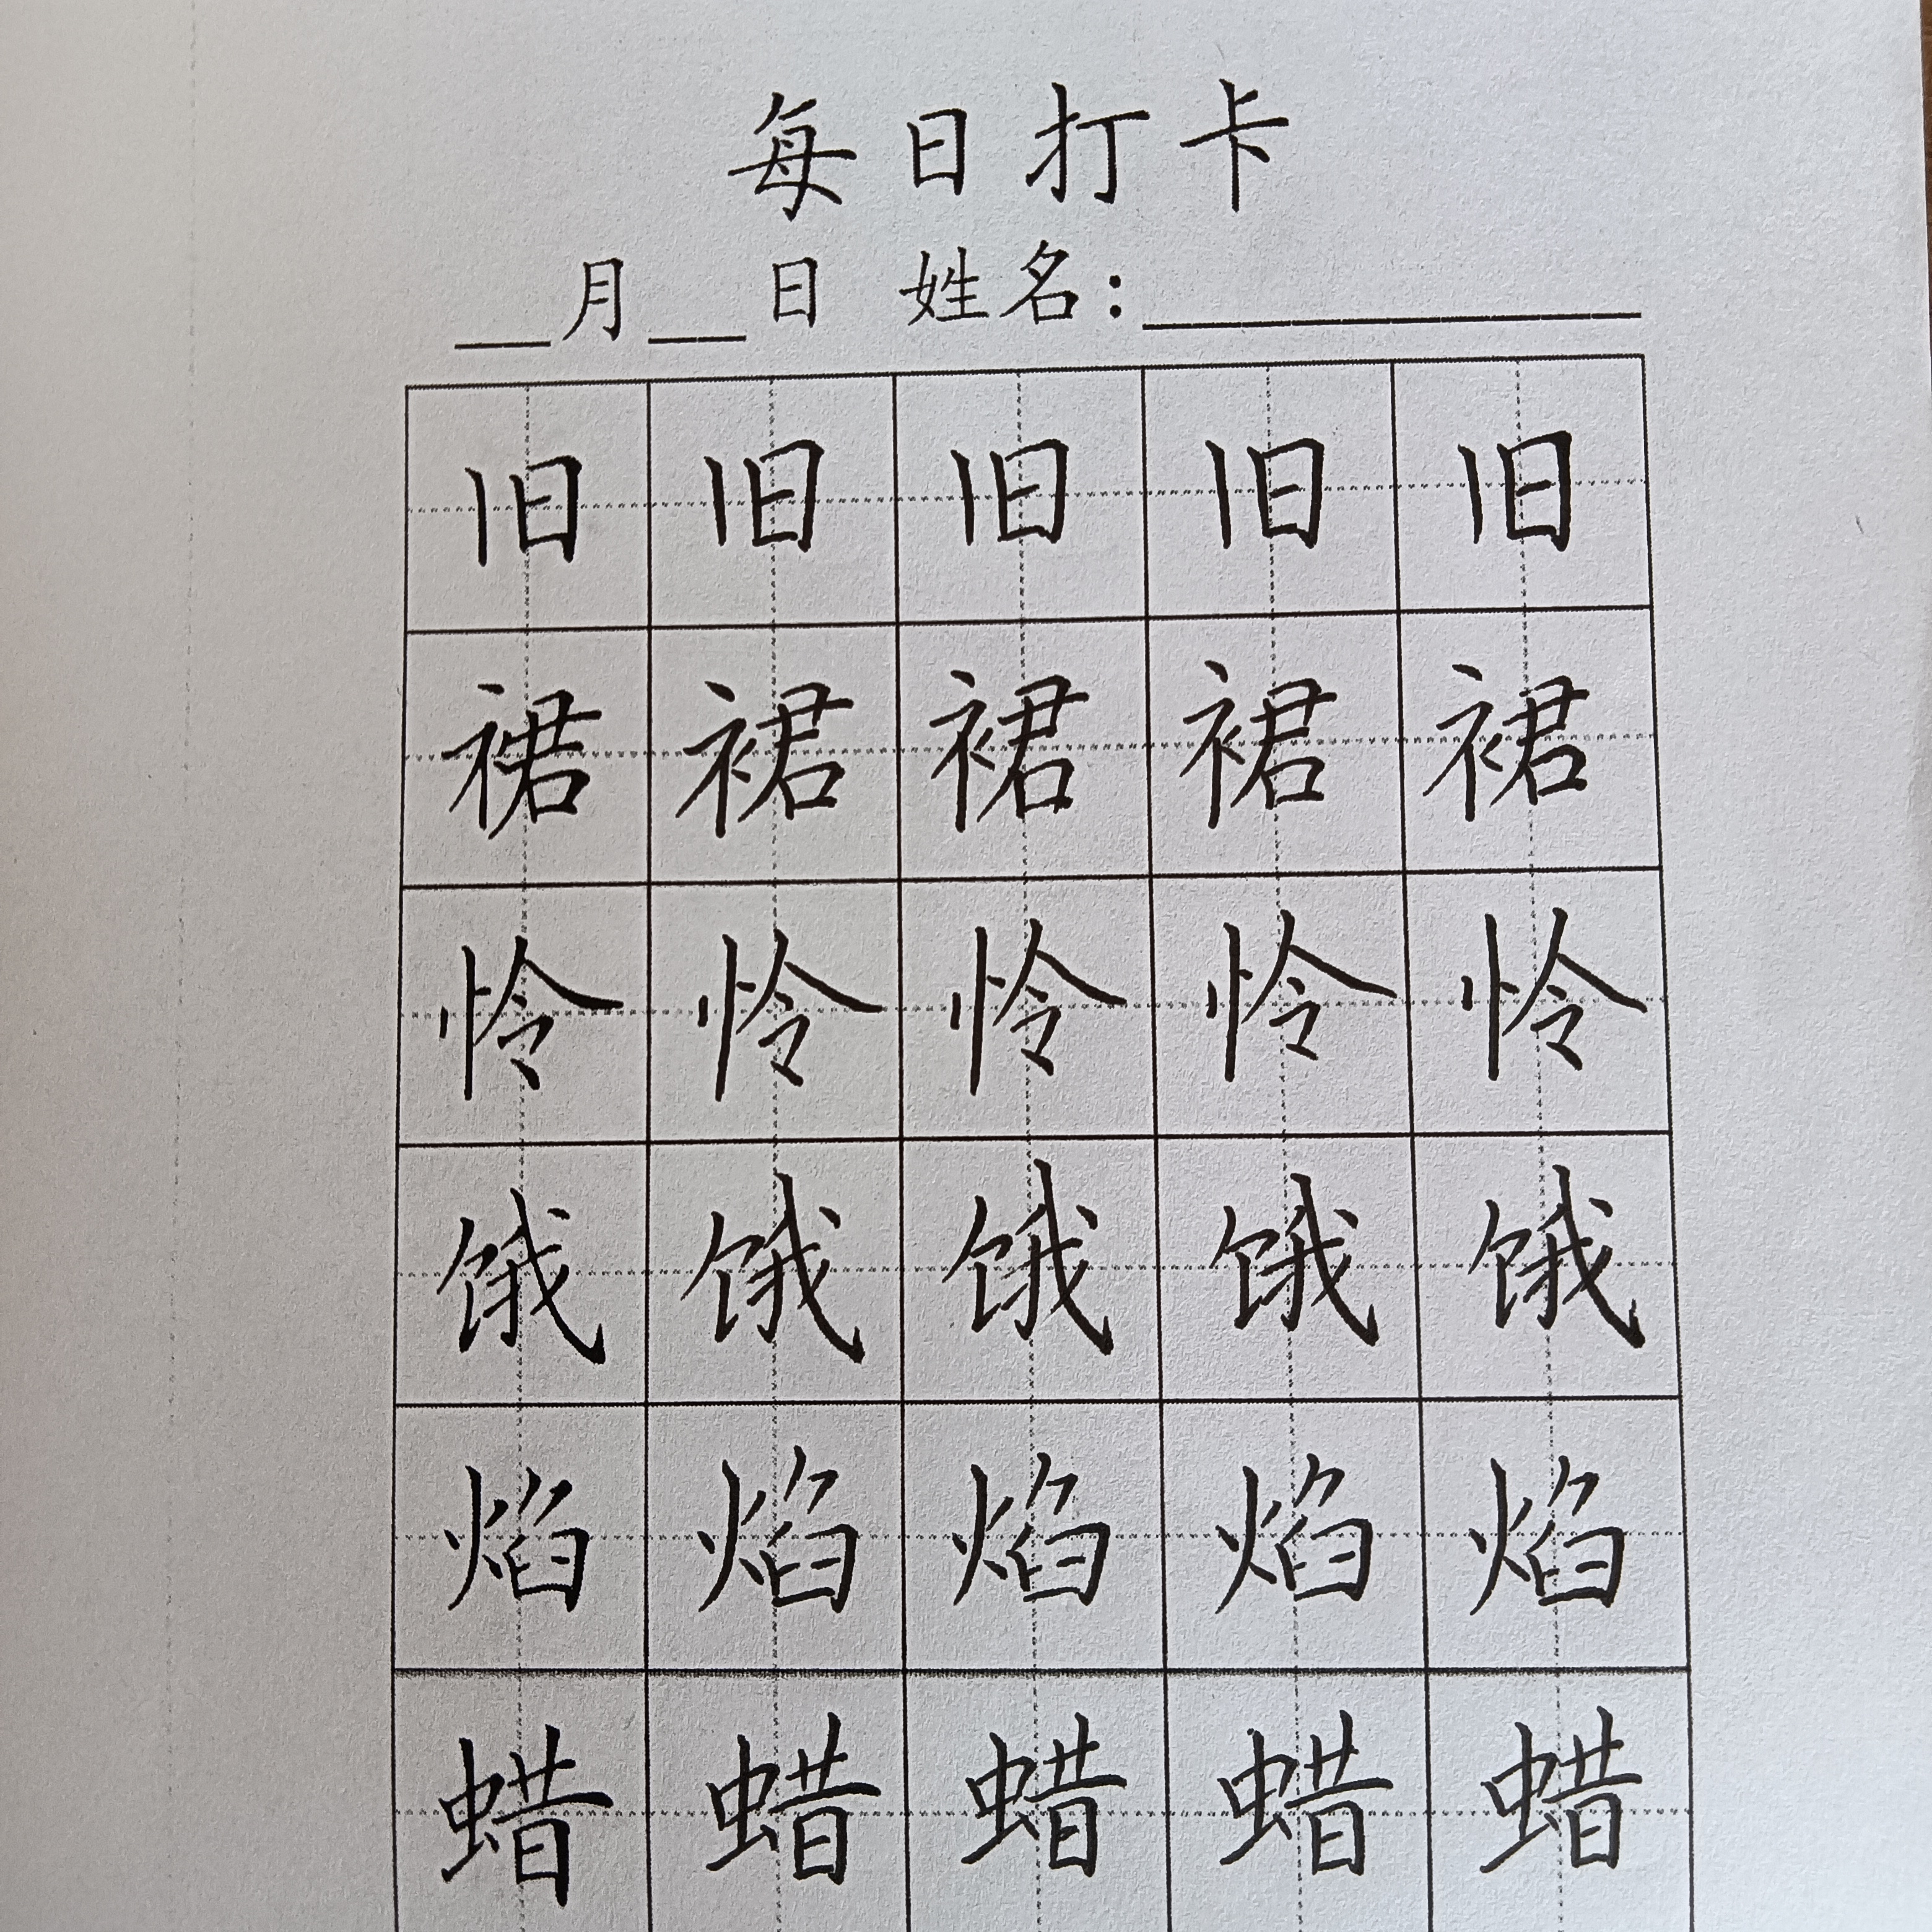 每日打卡
__月__日 姓名:__________
旧 旧 旧 旧 旧
裙 裙 裙 裙 裙
怜 怜 怜 怜 怜
饿 饿 饿 饿 饿
焰 焰 焰 焰 焰
蜡 蜡 蜡 蜡 蜡